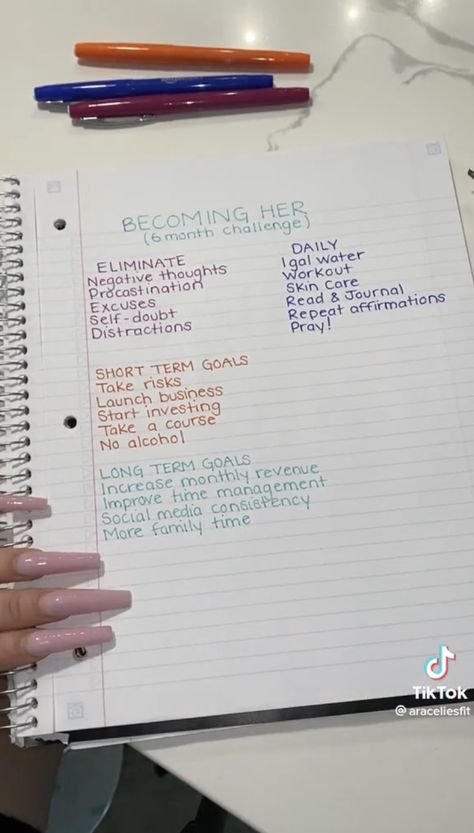 BECOMING HER
(6 month challenge)
ELIMINATE
Negative thoughts
Procastination
Excuses
Self-doubt
Distractions
DAILY
1 gal water
Workout
Skin Care
Read & Journal
Repeat affirmations
Pray!
SHORT TERM GOALS
Take risks
Launch business
Start investing
Take a course
No alcohol
LONG TERM GOALS
Increase monthly revenue
Improve time management
Social media consistency
More family time
TikTok
@araceliesfit